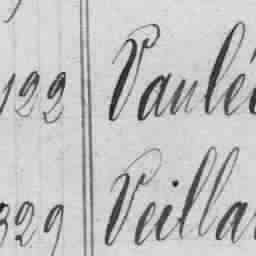 122 Paulé
329 Veilla